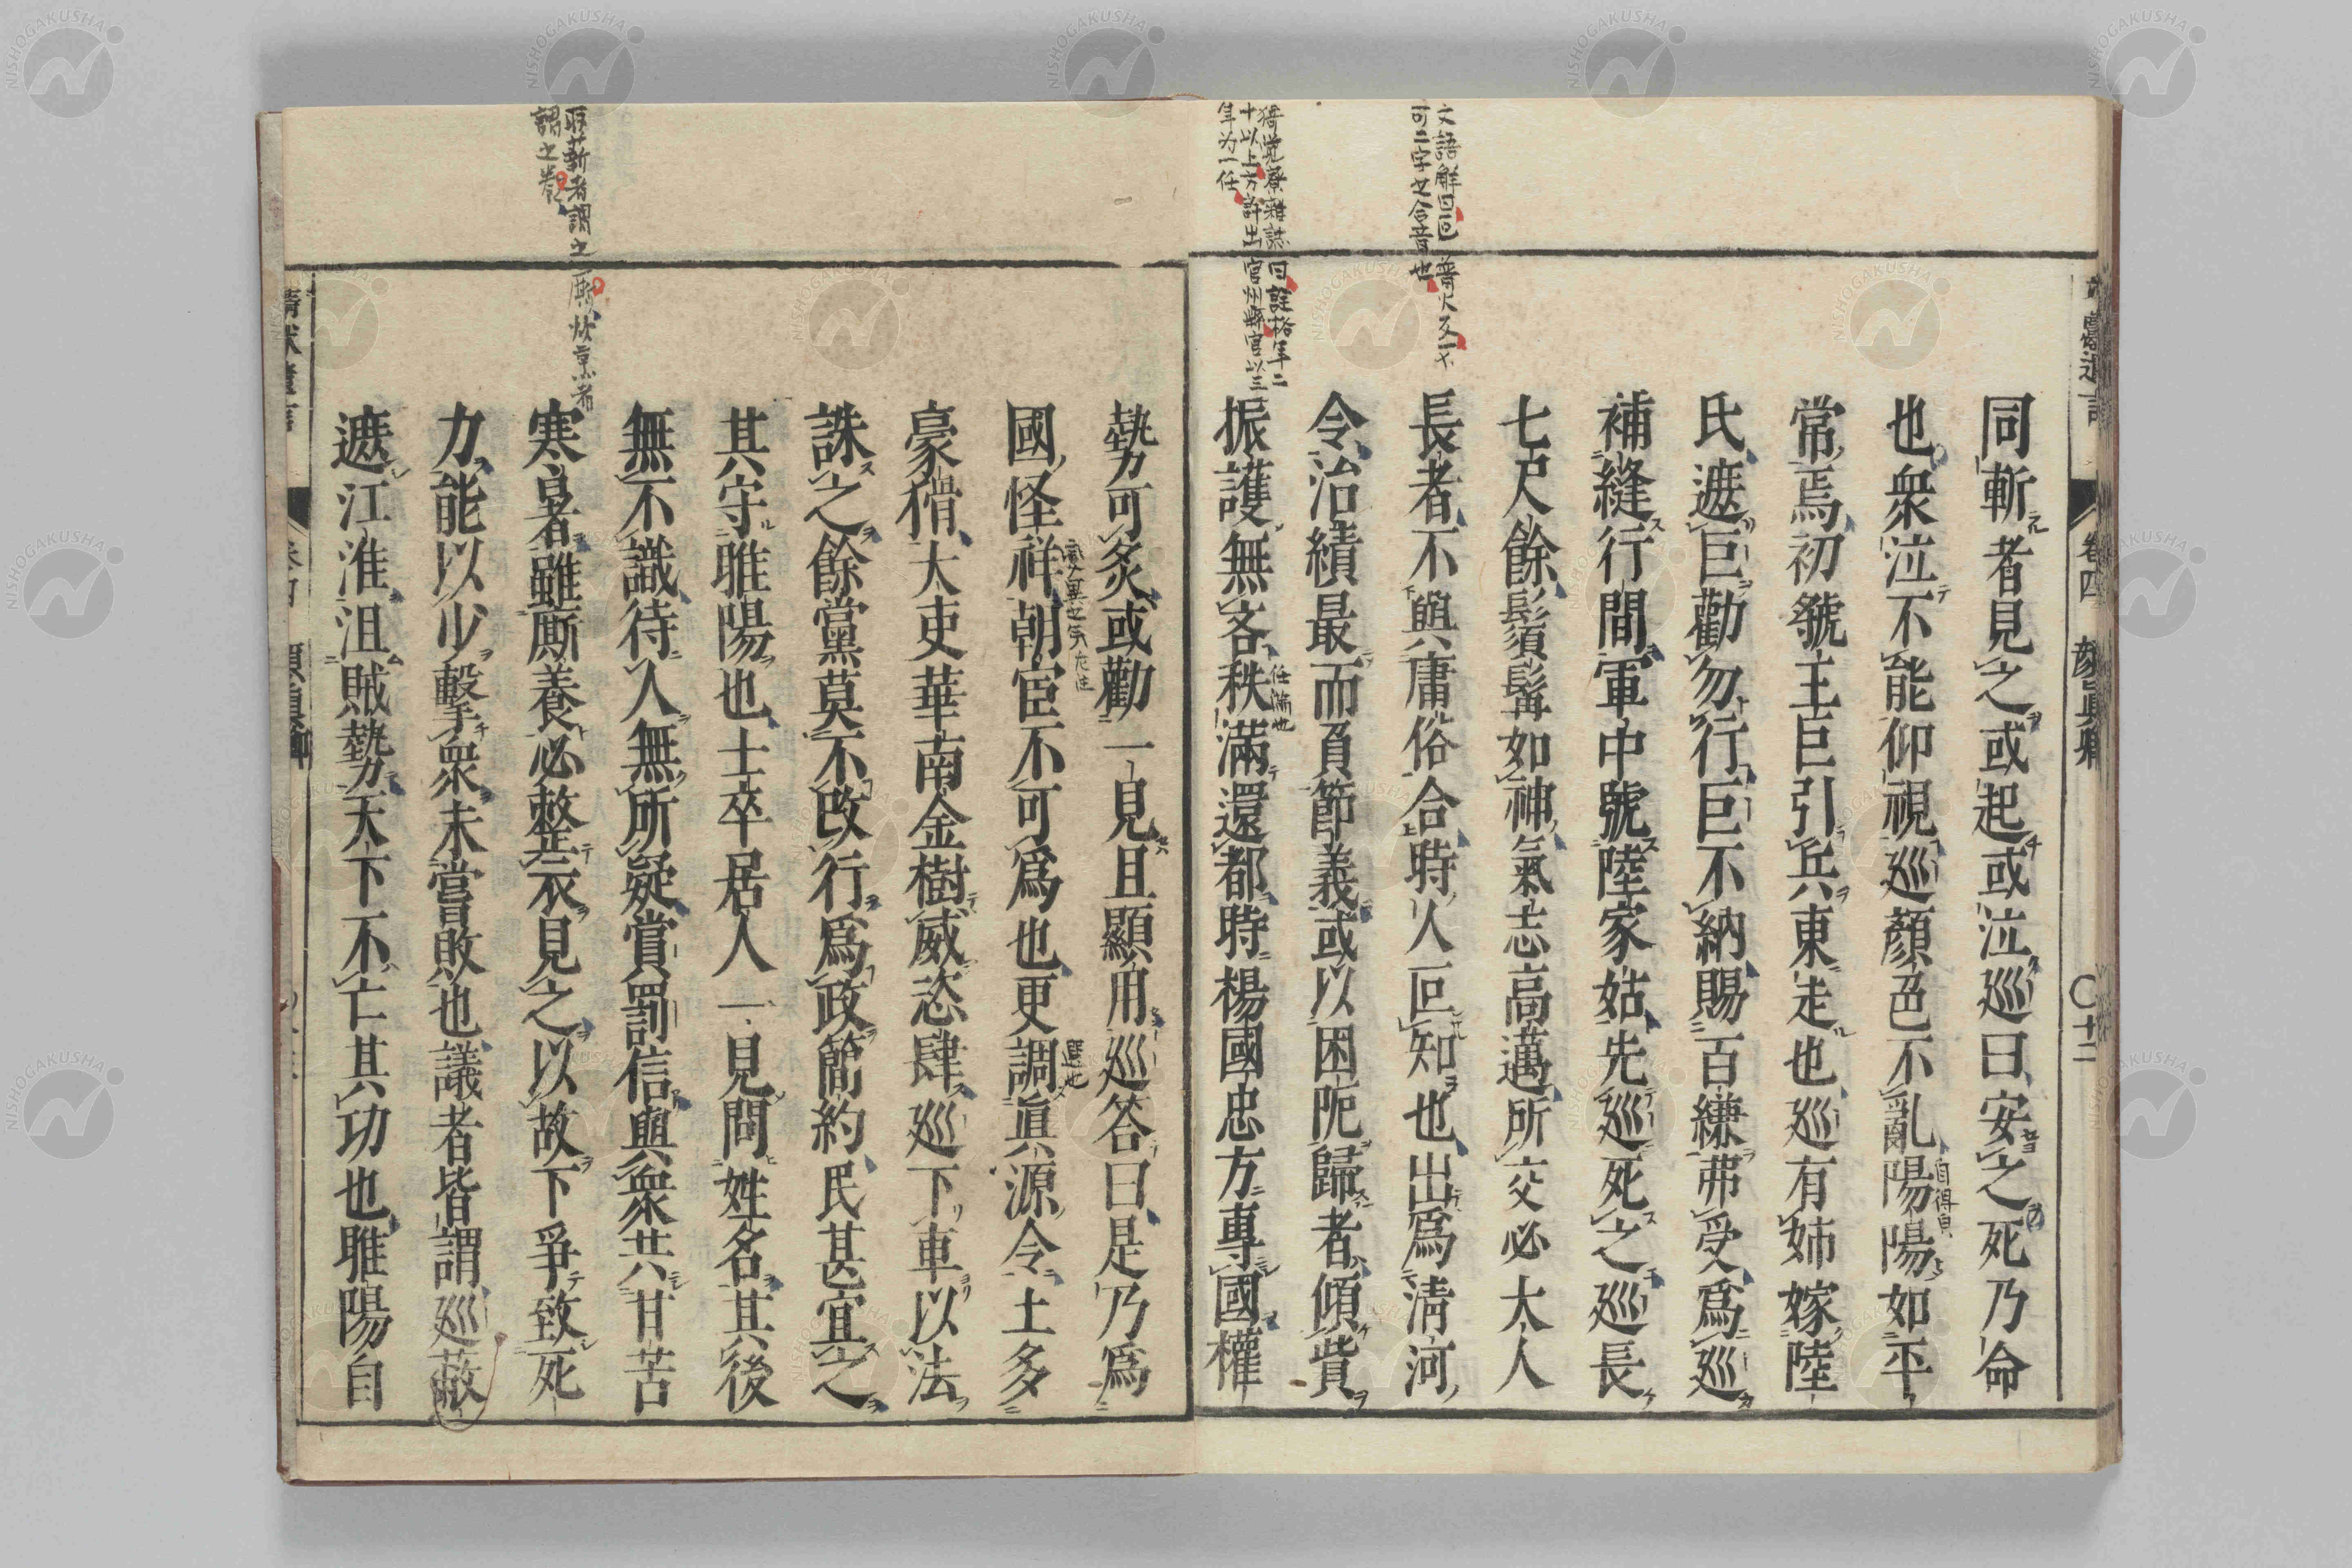 文語解曰叵音火又一ヤ
可二字之合音也
猗覺寮雜誌曰詿格年二
十以上方許出官州縣官以三
年为一任
卷四 顏眞卿 〇十二
同斬者見之或起或泣巡曰安之死乃命
也衆泣不能仰視巡顏色不亂陽陽如平
自得皃
常焉初虢王巨引兵東走也巡有姉嫁陸
氏遮巨勸勿行巨不納賜百縑弗受爲巡
補縫行間軍中號陸家姑先巡死之巡長
七尺餘鬚髯如神氣志高邁所交必大人
長者不與庸俗合時人叵知也出爲淸河
令治績最而負節義或以困阨歸者傾貲
振護無吝秩滿還都時楊國忠方專國權
任滿也
取薪者謂之厮炊烹者
謂之養
勢可炙或勸一見且顯用巡答曰是乃爲
國怪祥朝宦不可爲也更調眞源令土多
選也
豪猾大吏華南金樹威恣肆巡下車以法
誅之餘黨莫不改行爲政簡約民甚宜之
其守雎陽也士卒居人一見問姓名其後
無不識待人無所疑賞罰信與衆共甘苦
寒暑雖厮養必整衣見之以故下爭致死
力能以少擊衆未嘗敗也議者皆謂巡蔽
遮江淮沮賊勢天下不亡其功也雎陽自